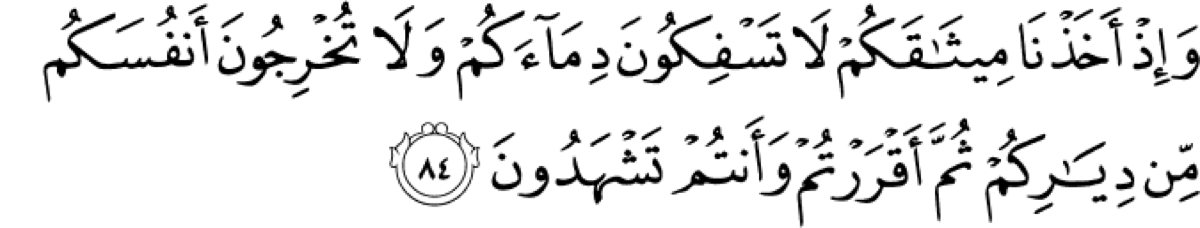 وَإِذْ أَخَذْنَا مِيثَـٰقَكُمْ لَا تَسْفِكُونَ دِمَآءَكُمْ وَلَا تُخْرِجُونَ أَنفُسَكُم
مِّن دِيَـٰرِكُمْ ثُمَّ أَقْرَرْتُمْ وَأَنتُمْ تَشْهَدُونَ ٨٤